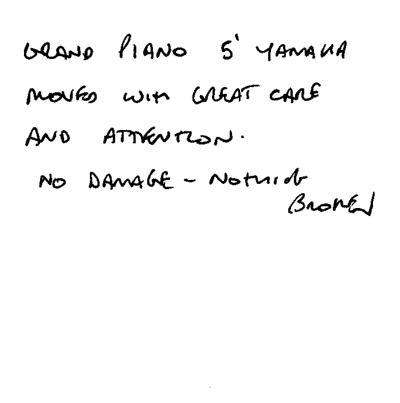 GRAND PIANO 5' YAMAHA
MOVED WITH GREAT CARE
AND ATTENTION.
NO DAMAGE - NOTHING
BROKEN